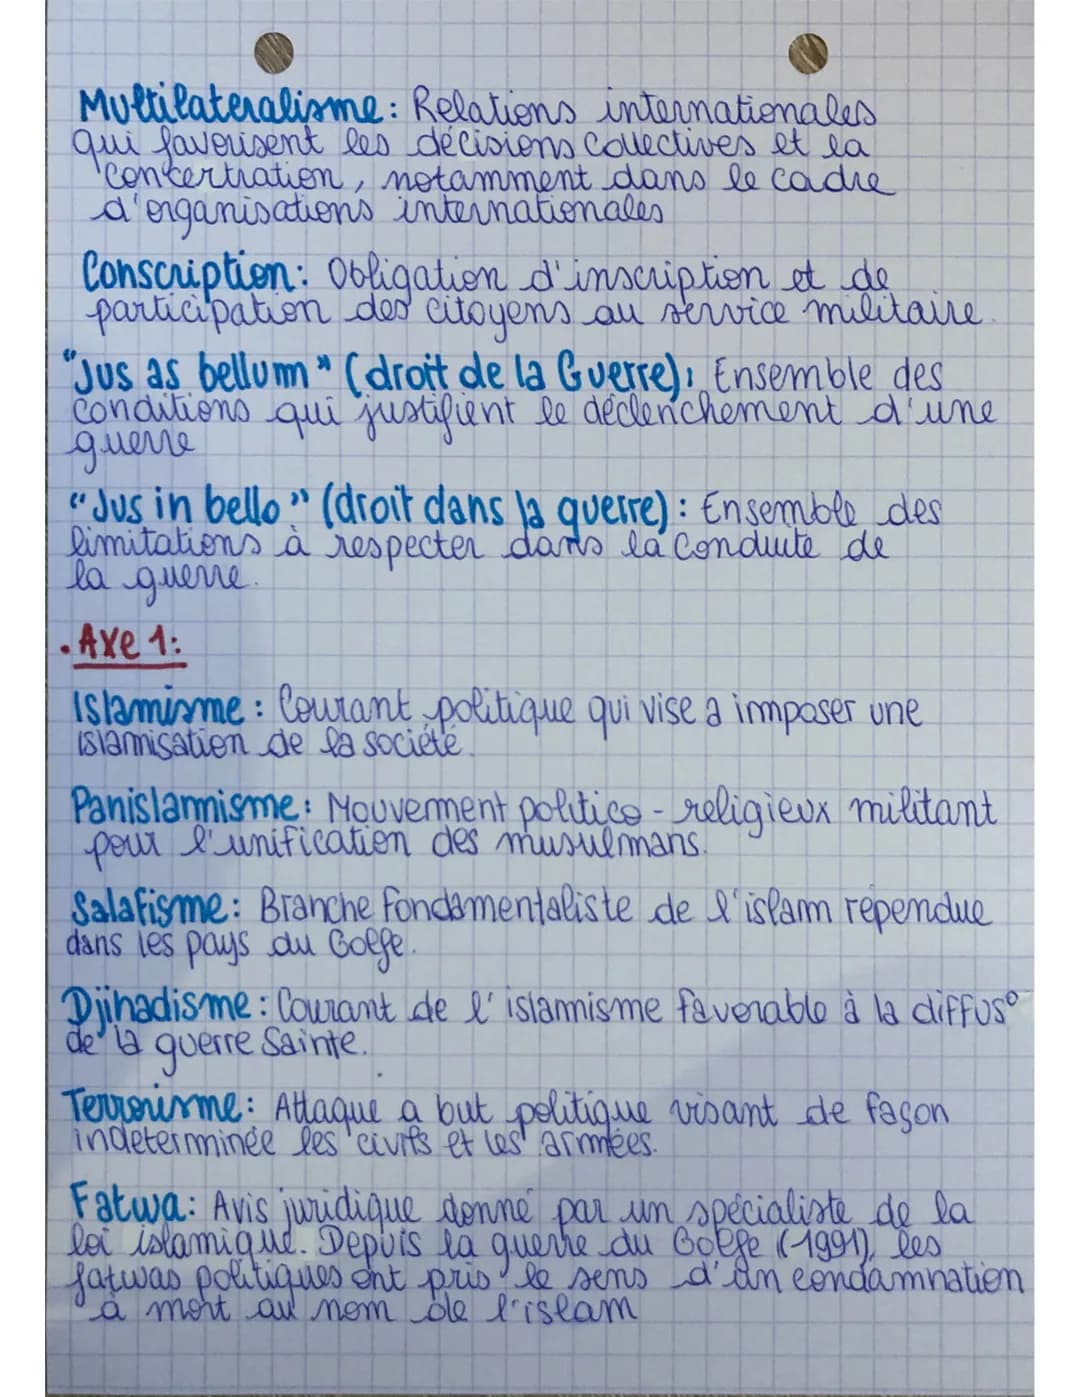 Multilateralisme: Relations internationales
qui favorisent les décisions collectives et la
concertration, notamment dans le cadre
d'organisations internationales
Conscription: Obligation d'inscription et de
participation des citoyens au service militaire.
"Jus as bellum" (droit de la Guerre): Ensemble des
conditions qui justifient le déclenchement d'une
guerre
"Jus in bello" (droit dans la guerre): Ensemble des
limitations à respecter dans la conduite de
la guerre.
. Axe 1:
Islamisme: Courant politique qui vise a imposer une
islamisation de la société.
Panislamisme: Mouvement politico-religieux militant
pour l'unification des musulmans.
Salafisme: Branche fondamentaliste de l'islam répendue
dans les pays du Golfe.
Djihadisme: Courant de l'islamisme favorable à la diffus°
de la guerre Sainte.
Terrorisme: Attaque a but politique visant de façon
indéterminée les civils et les armées.
Fatwa: Avis juridique donné par un spécialiste de la
loi islamique. Depuis la guerre du Golfe (1991), les
fatwas politiques ont pris le sens d'un condamnation
à mort au nom de l'islam